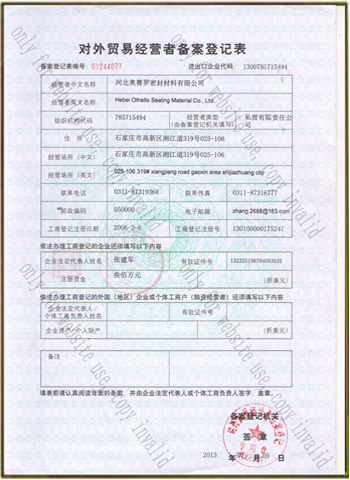 对外贸易经营者备案登记表
备案登记表编号: 01244077 进出口企业代码: 1300785715494
经营者中文名称 河北奥赛罗密封材料有限公司
经营者英文名称 Hebei Othello Sealing Material Co., Ltd
组织机构代码 785715494 经营者类型 (由备案登记机关填写) 私营有限责任公司
住 所 石家庄市高新区湘江道319号025-106
经营场所（中文） 石家庄市高新区湘江道319号025-106
经营场所（英文） 025-106 319# xiangjiang road gaoxin area shijiazhuang city
联系电话 0311-87319368 联系传真 0311-87316777
邮政编码 050000 电子邮箱 zhang.2688@163.com
工商登记注册日期 2006-3-6 工商登记注册号 130100000175247
依法办理工商登记的企业还须填写以下内容
企业法定代表人姓名 张建军 有效证件号
注册资金 叁佰万元 (折美元)
依法办理工商登记的外国（地区）企业或个体工商户（独资经营者）还须填写以下内容
企业法定代表人/个体工商负责人姓名 有效证件号
企业资产/个人财产 (折美元)
备注
填表前请认真阅读背面的条款，并由企业法定代表人或个体工商负责人签字、盖章。
备案登记机关
签 章
2013 年 月
only for website use, copy invalid
only for website use, copy invalid
only for website use, copy invalid